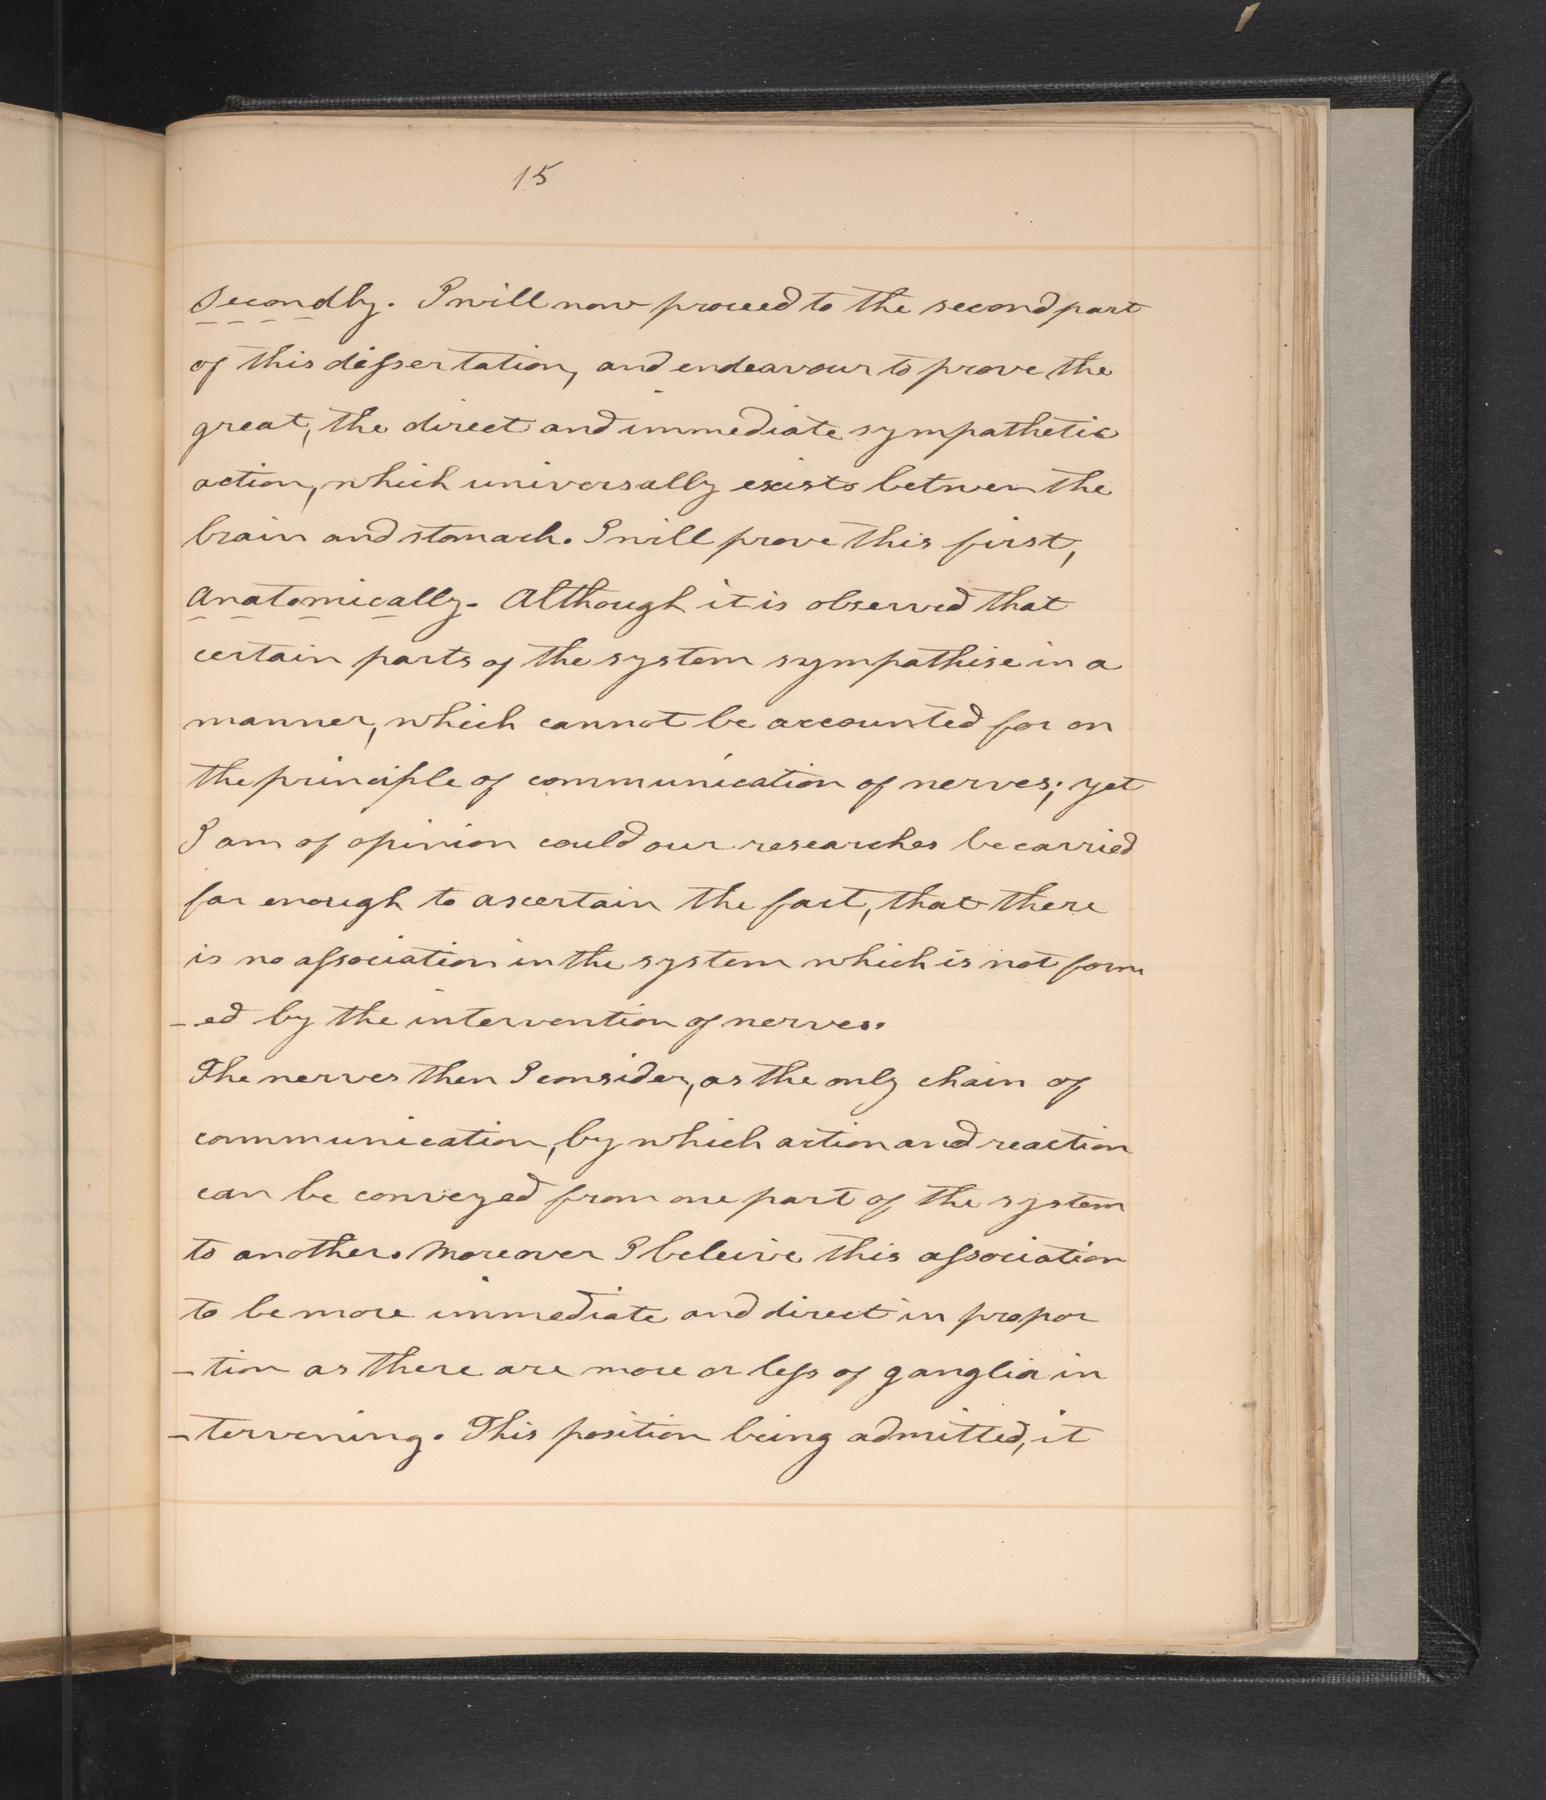 15
Secondly. I will now proceed to the second part
of this dissertation, and endeavour to prove the
great, the direct and immediate sympathetic
action, which universally exists between the
brain and stomach. I will prove this first,
Anatomically. Although it is observed that
certain parts of the system sympathise in a
manner, which cannot be accounted for on
the principle of communication of nerves; yet
I am of opinion could our researches be carried
far enough to ascertain the fact, that there
is no association in the system which is not form
-ed by the intervention of nerves.
The nerves then I consider, as the only chain of
communication, by which action and reaction
can be conveyed from one part of the system
to another. Moreover I beleive this association
to be more immediate and direct in propor
-tion as there are more or less of ganglia in
-tervening. This position being admitted, it